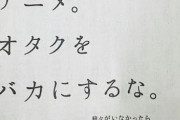 オタクを
バカにするな。
がいなかったら